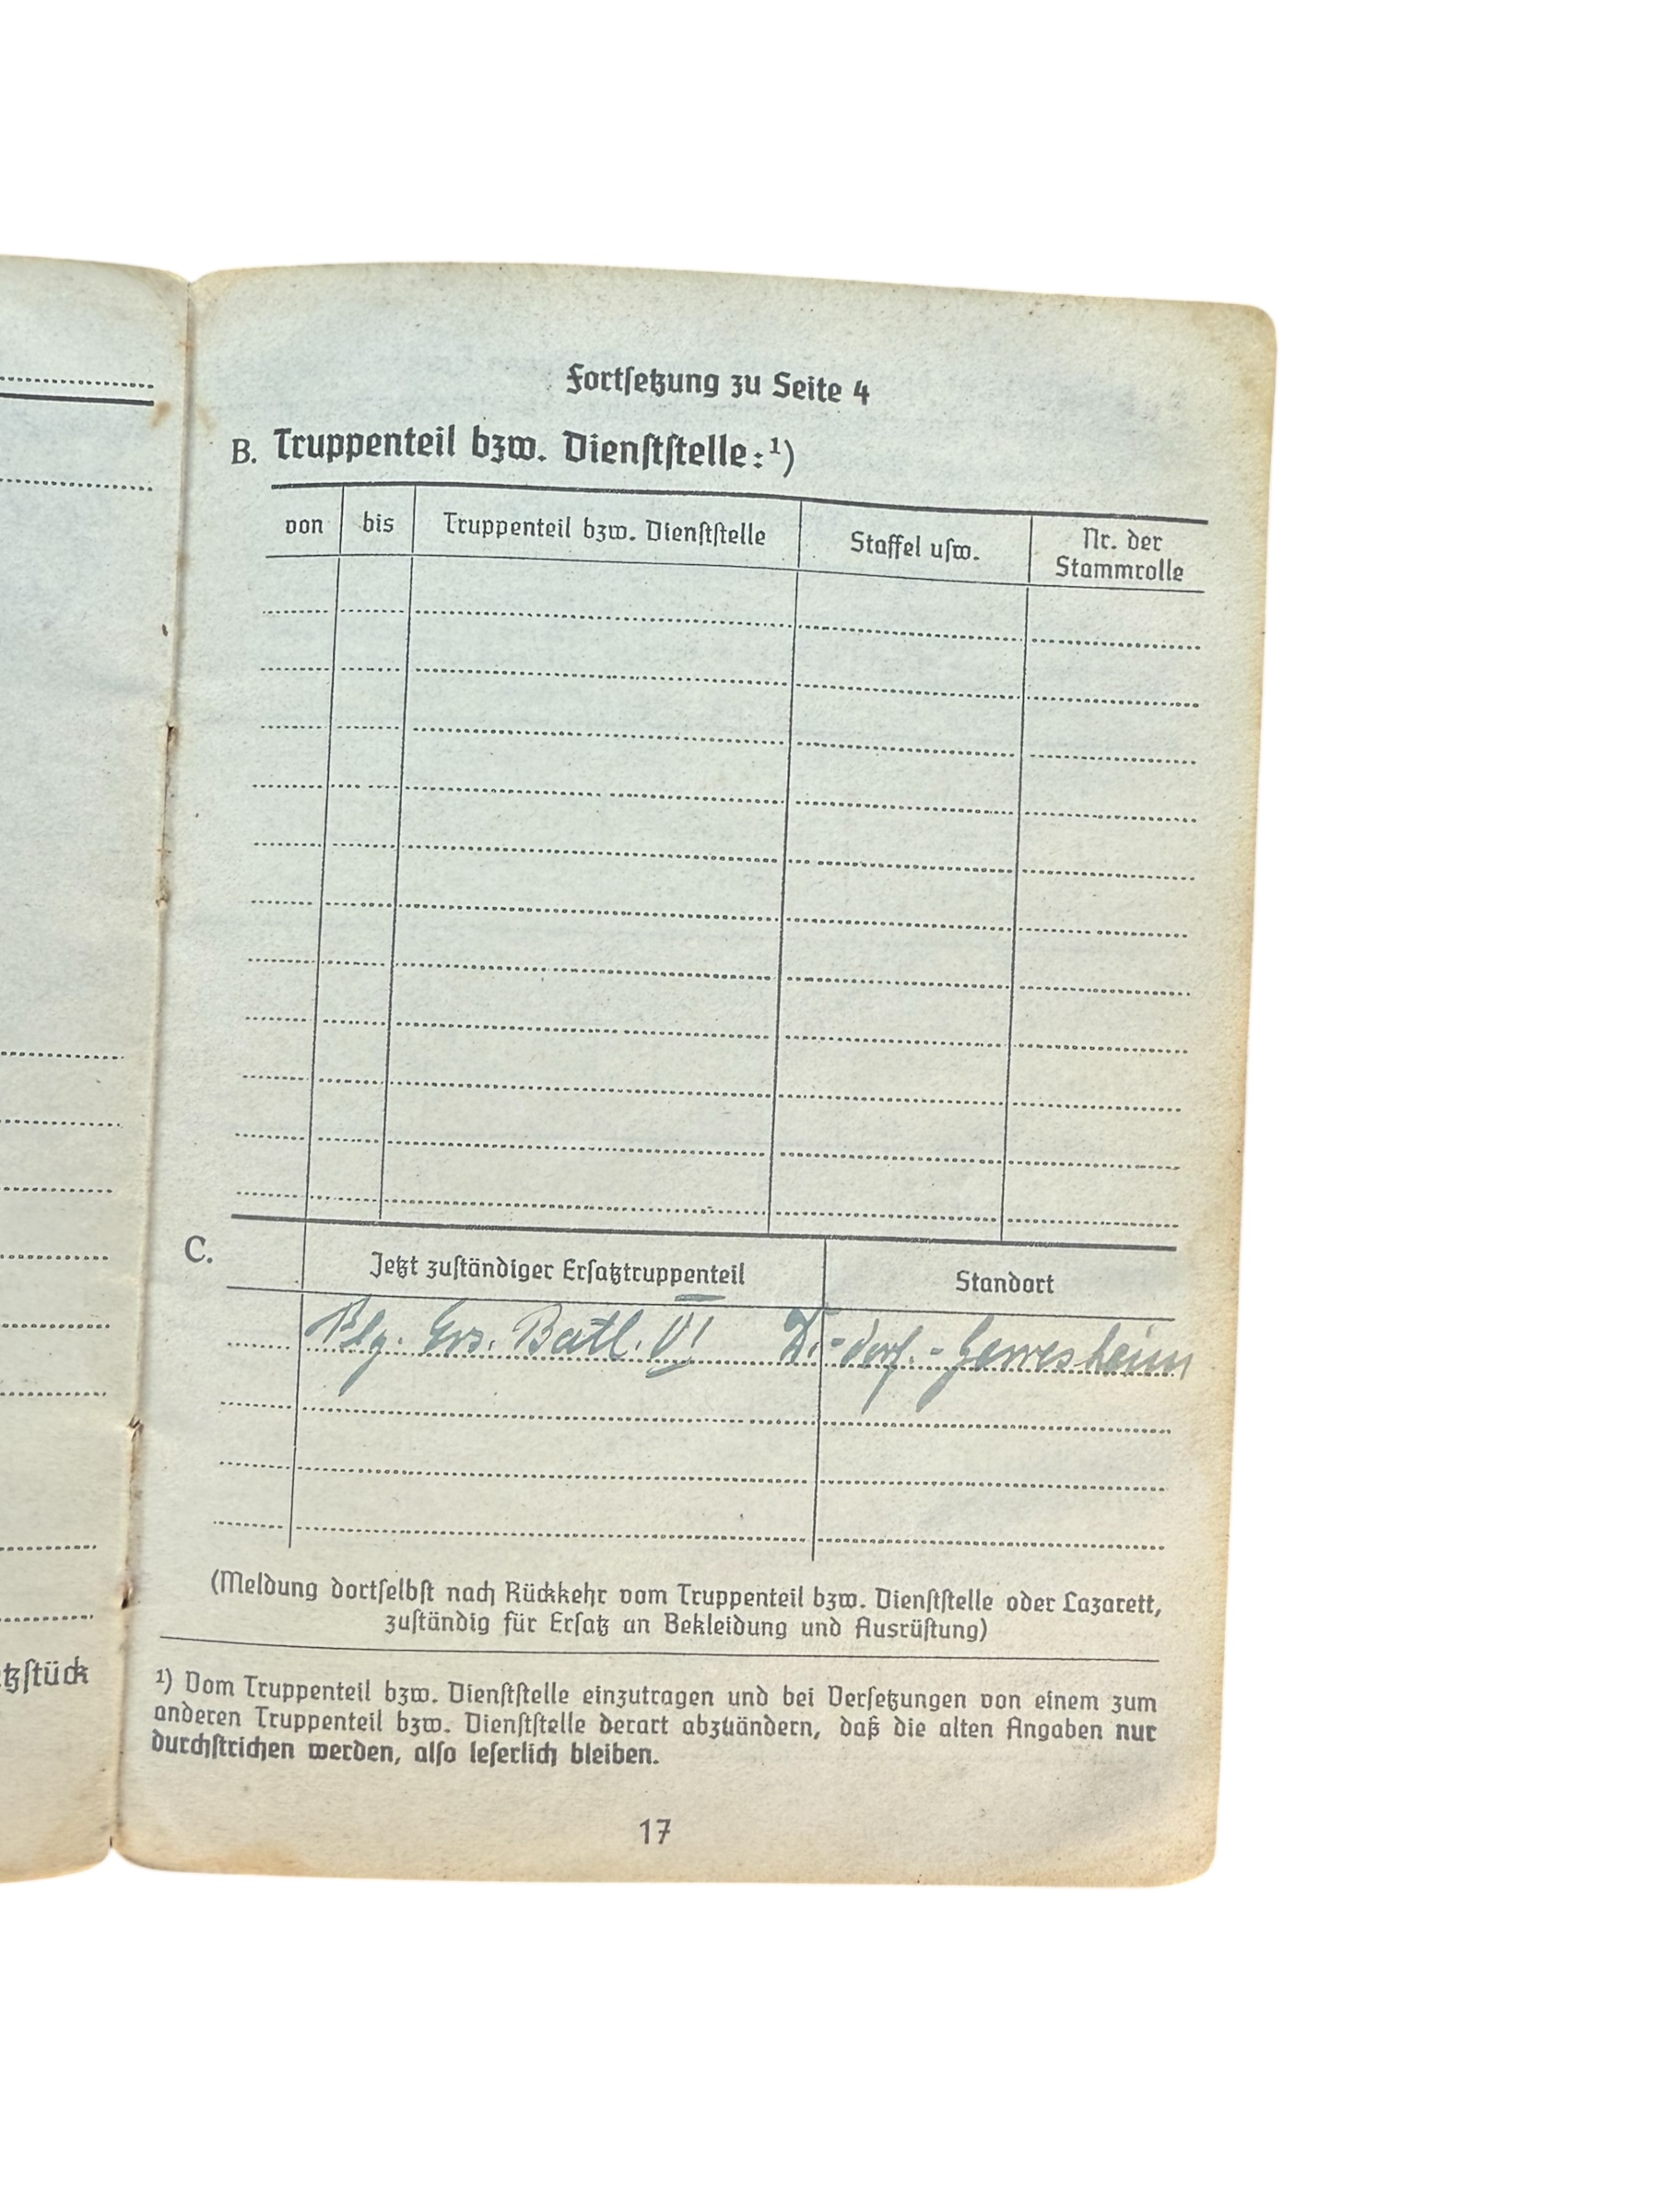 Fortsetzung zu Seite 4
B. Truppenteil bzw. Dienststelle:¹)
von bis Truppenteil bzw. Dienststelle Staffel usw. Nr. der Stammrolle
C. Jetzt zuständiger Ersatztruppenteil Standort
Ers. Batl. VI D.-dorf.-Gerresheim
(Meldung dortselbst nach Rückkehr vom Truppenteil bzw. Dienststelle oder Lazarett,
zuständig für Ersatz an Bekleidung und Ausrüstung)
¹) Vom Truppenteil bzw. Dienststelle einzutragen und bei Versetzungen von einem zum
anderen Truppenteil bzw. Dienststelle derart abzuändern, daß die alten Angaben nur
durchstrichen werden, also leserlich bleiben.
17
tzstück